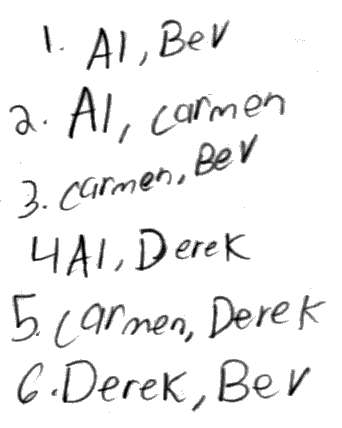 1. Al, Bev
2. Al, Carmen
3. Carmen, Bev
4 Al, Derek
5. Carmen, Derek
6. Derek, Bev